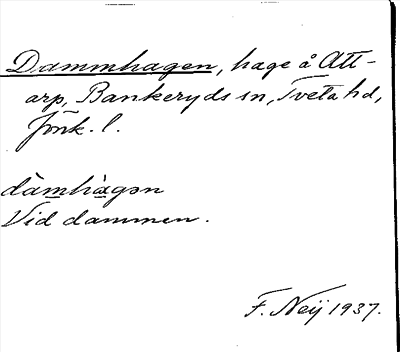 Dammhagen, hage å Att-
arp, Bankeryds sn, Tveta hd,
Jönk. l.
dàmhàgən
Vid dammen.
F. Neij 1937.